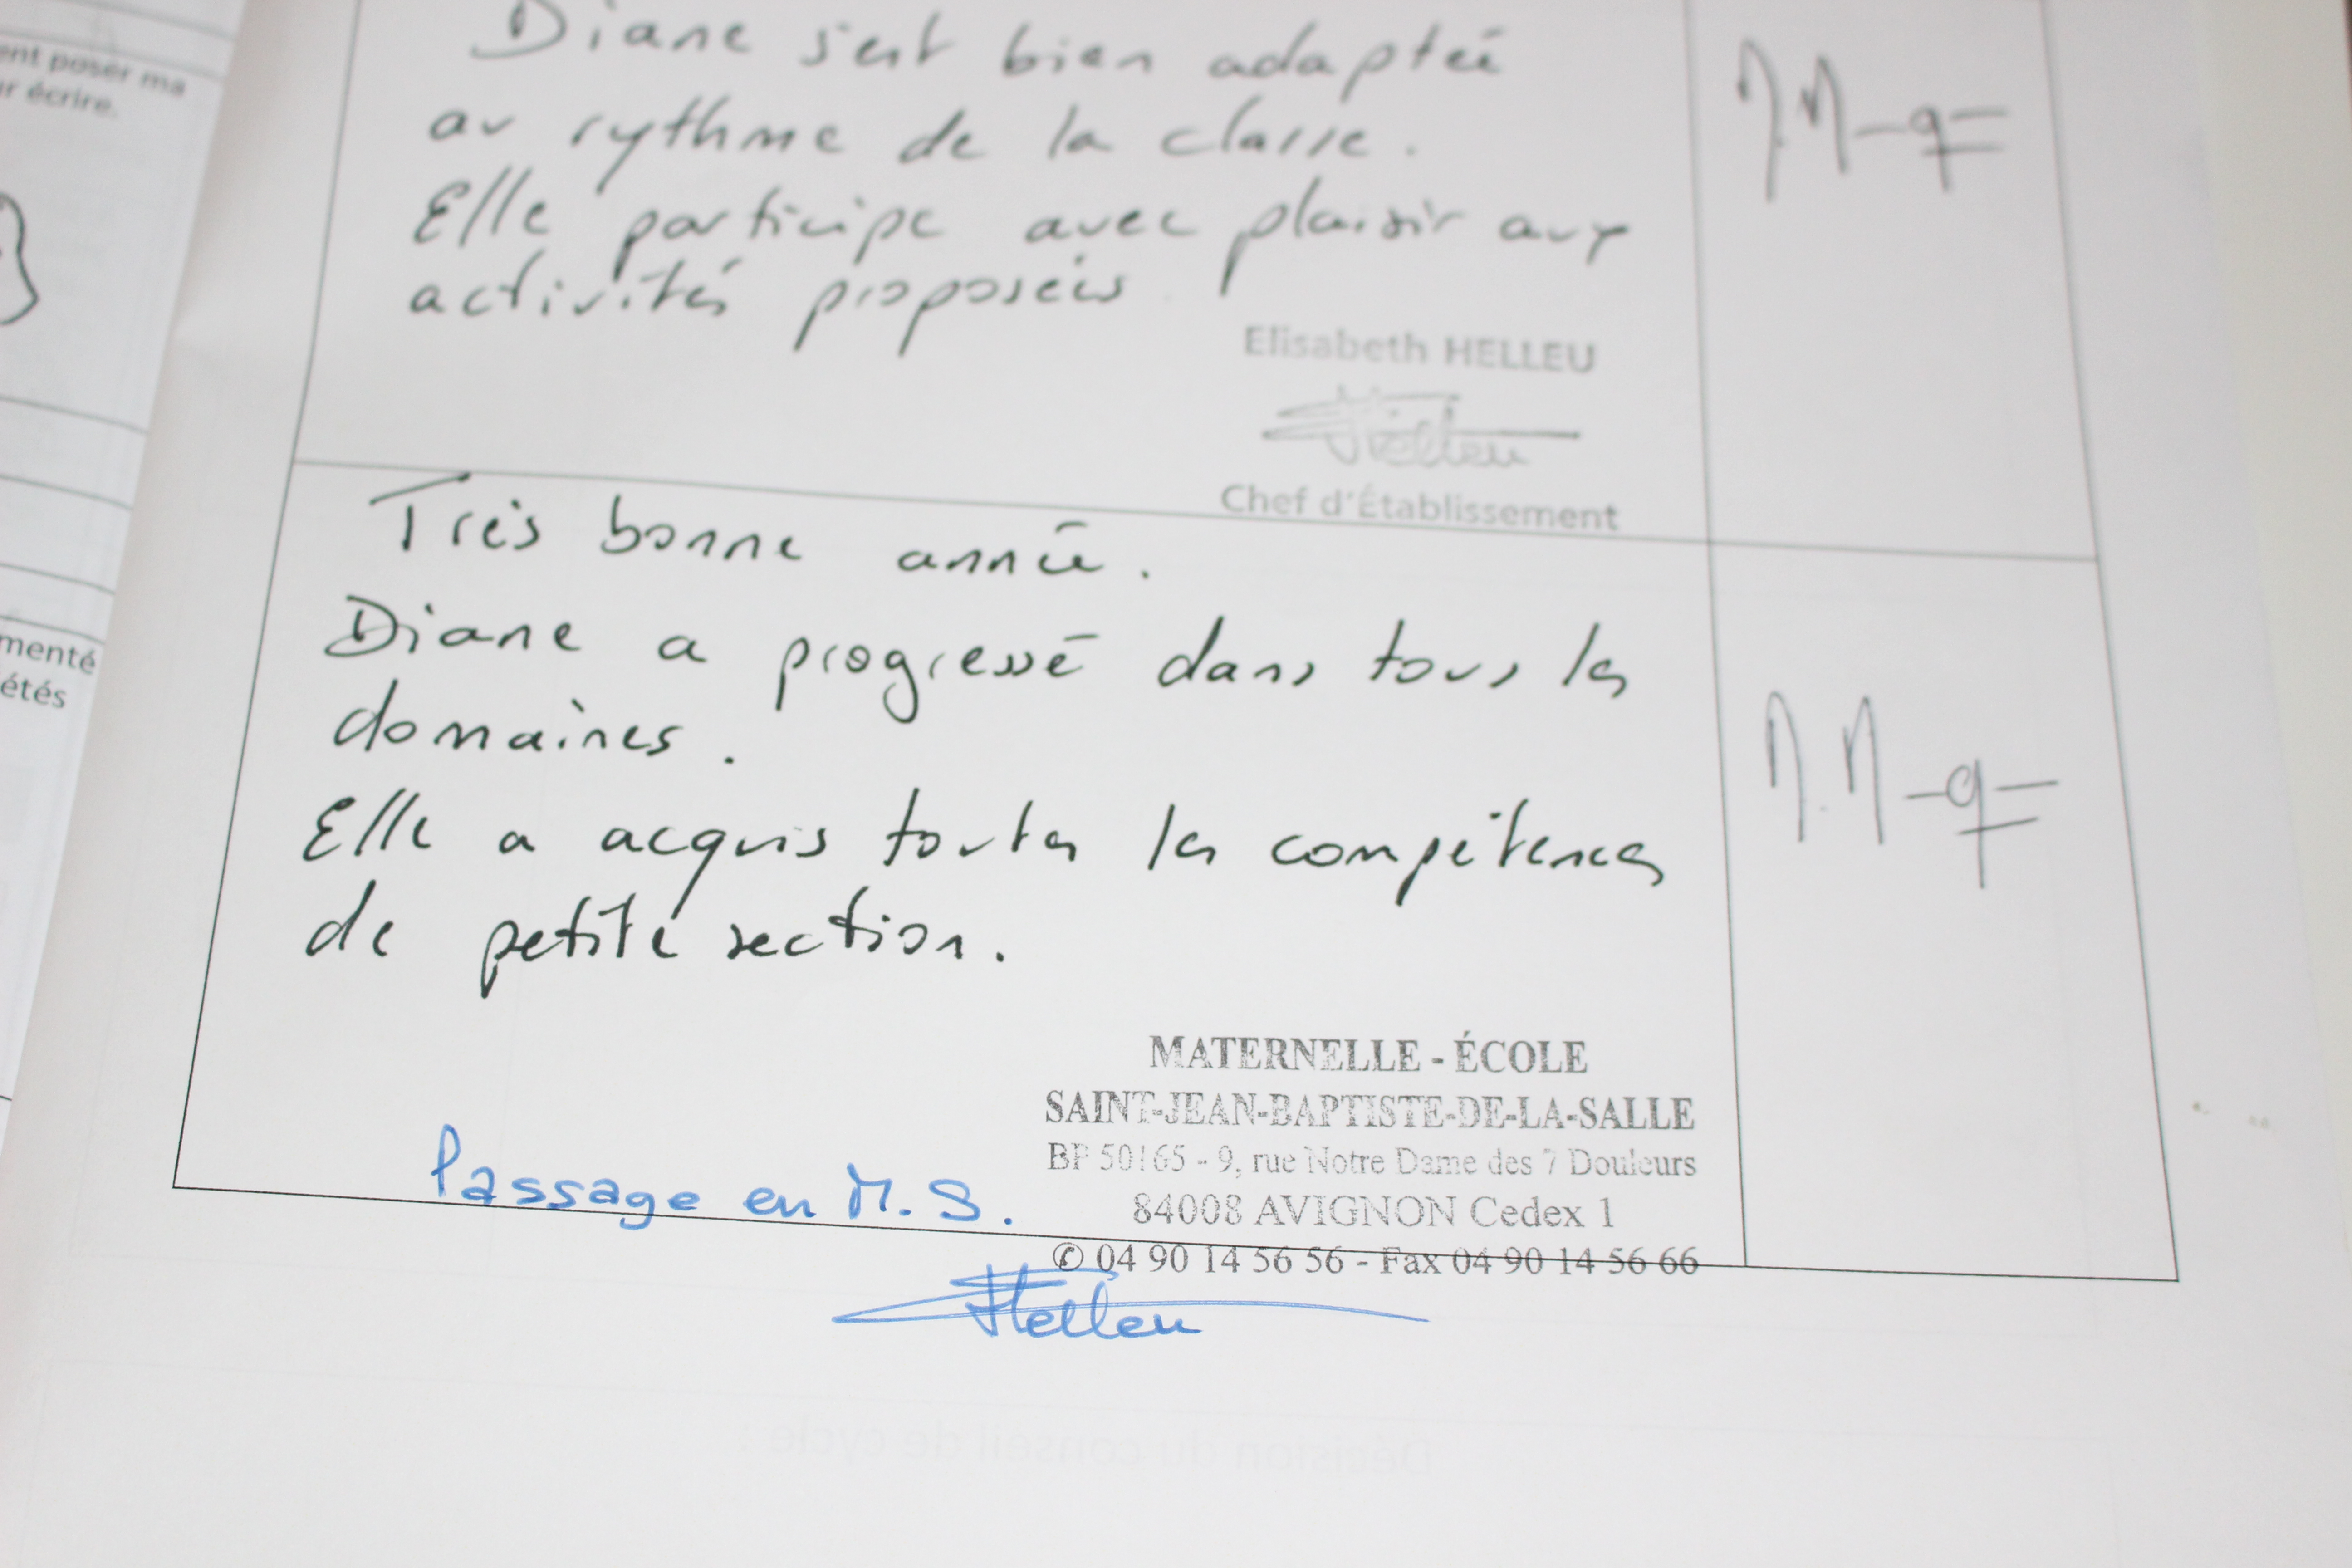 ent poser ma
r écrire.
menté
étés
Diane s'est bien adaptée
au rythme de la classe.
Elle participe avec plaisir aux
activités proposées.
Elisabeth HELLEU
Helleu
Chef d'Établissement
Très bonne année.
Diane a progressé dans tous les
domaines.
Elle a acquis toutes les compétences
de petite section.
MATERNELLE - ÉCOLE
SAINT-JEAN-BAPTISTE-DE-LA-SALLE
BP 50165 - 9, rue Notre Dame des 7 Douleurs
84008 AVIGNON Cedex 1
✆ 04 90 14 56 56 - Fax 04 90 14 56 66
Passage en M.S.
Helleu
Décision du conseil de cycle :